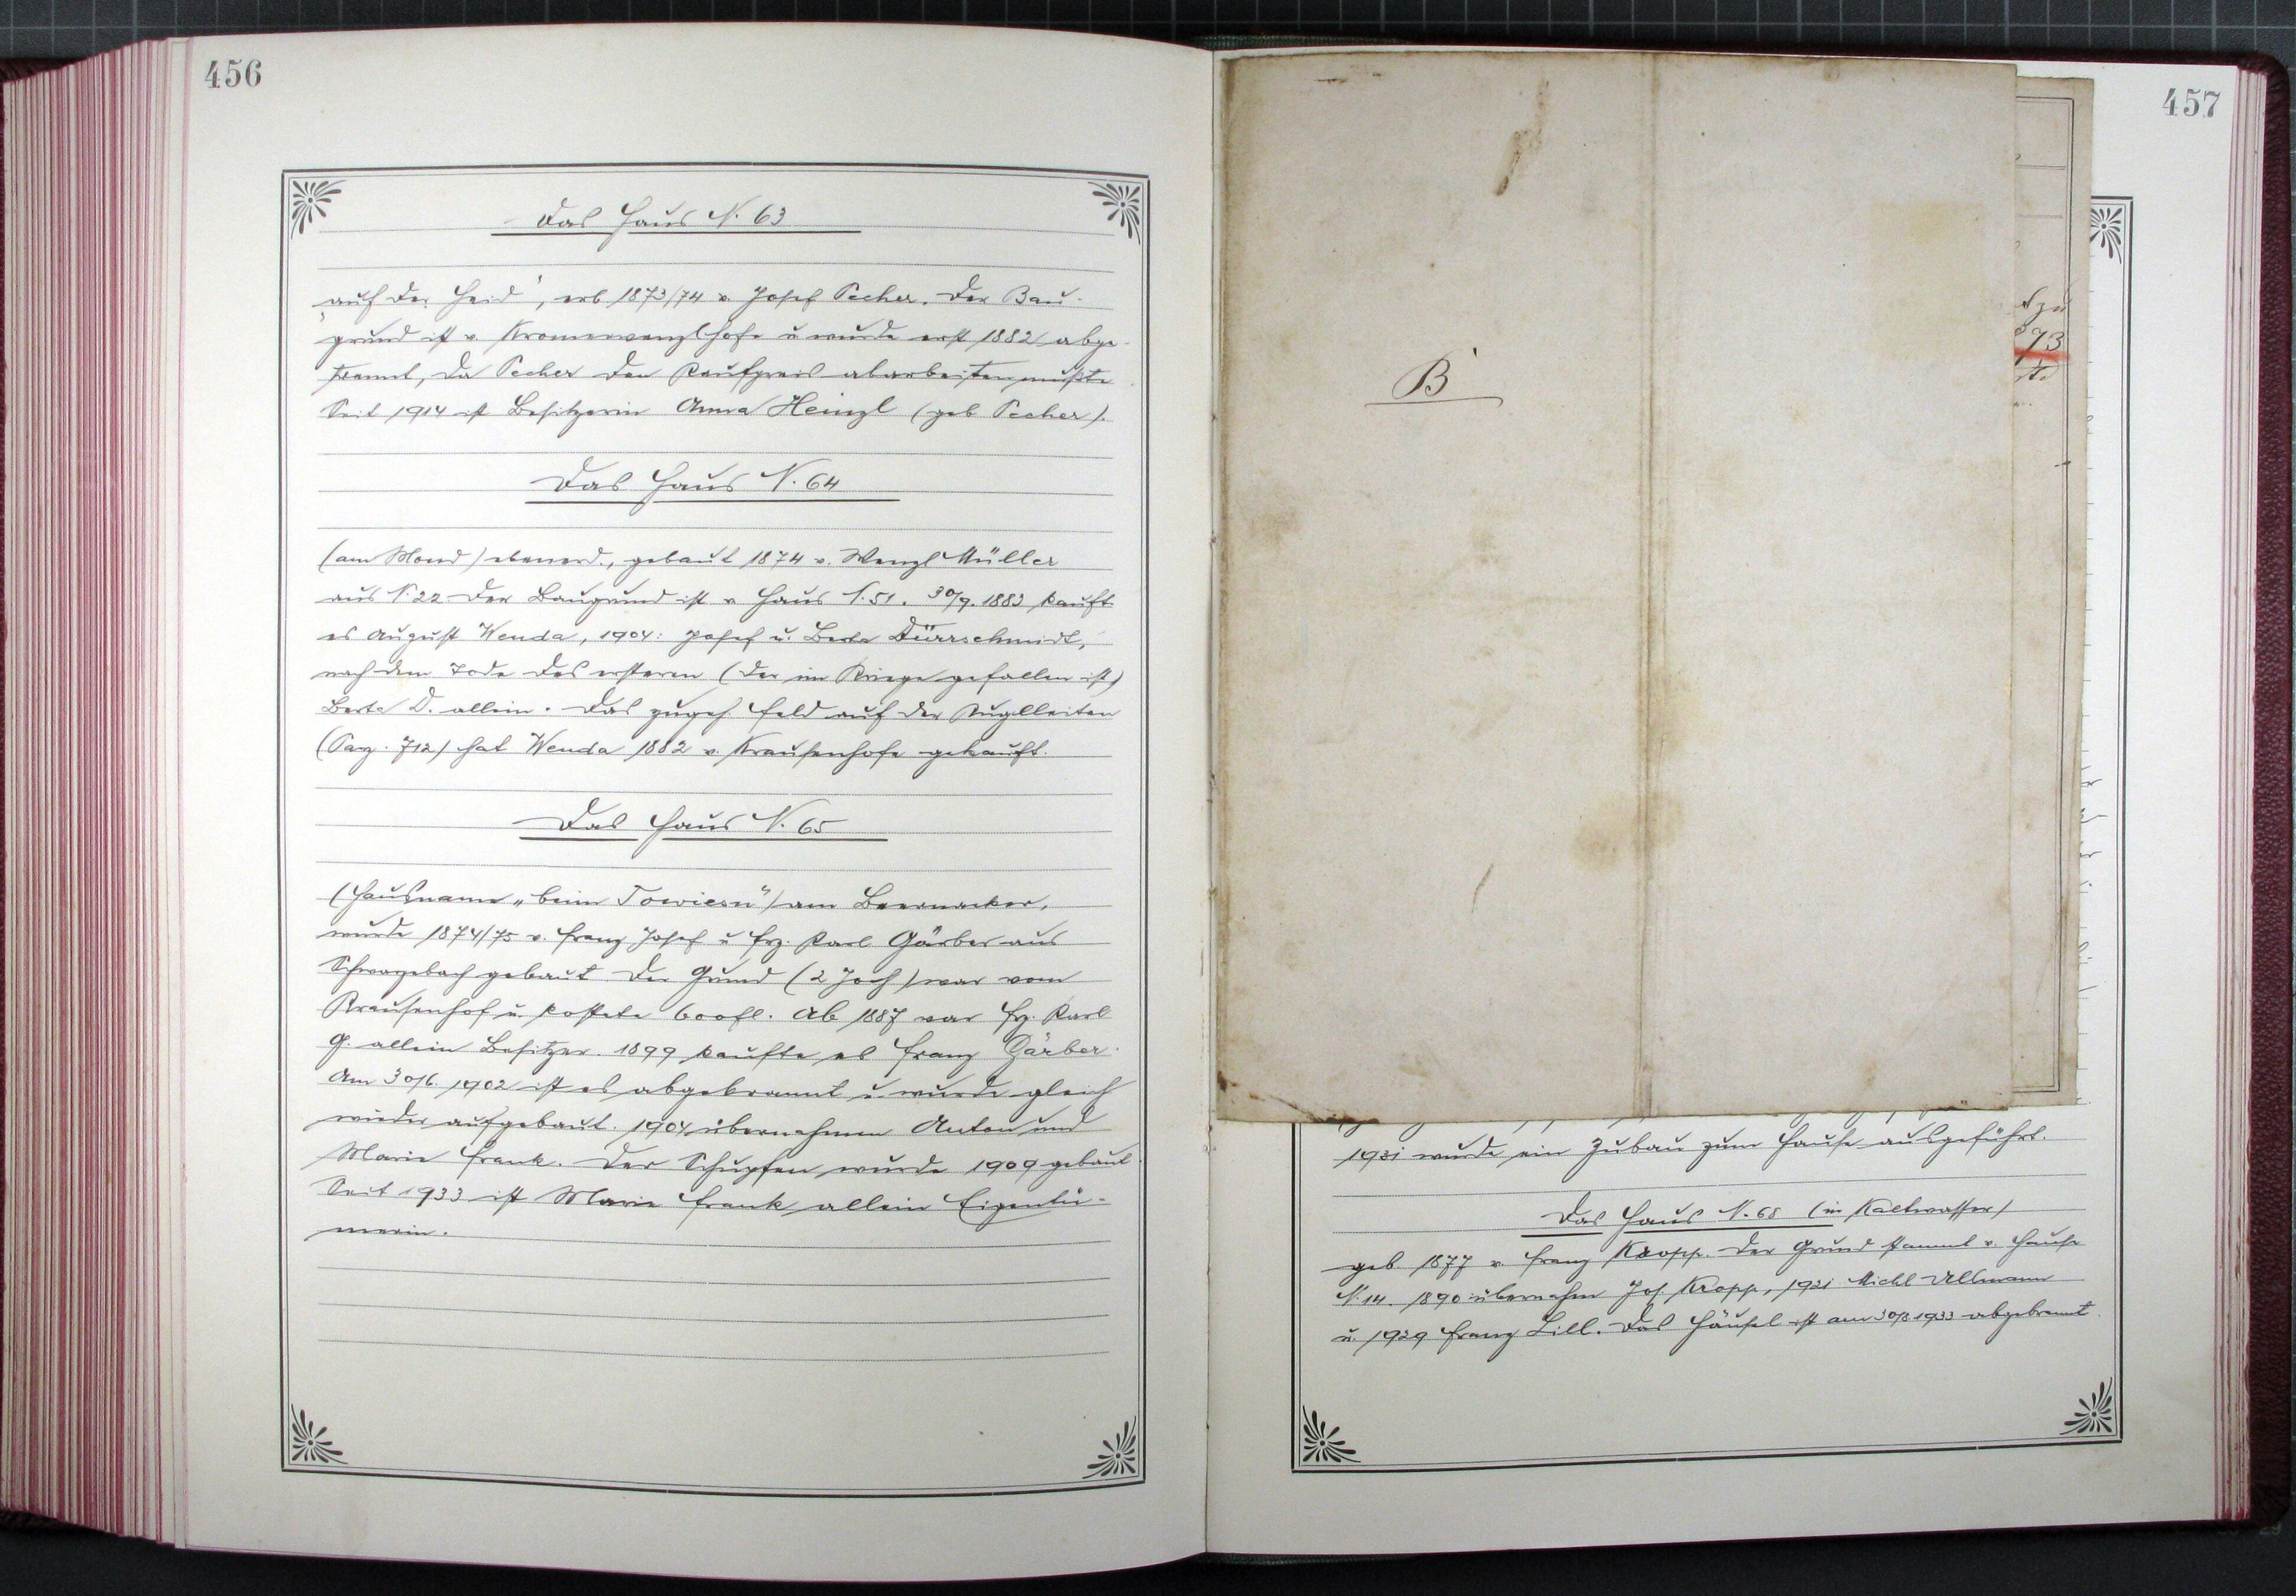 456
Das Haus N. 63
„auf der Heid", erb. 1873/74 v. Josef Pecher. Der Bau-
grund ist v. Kromerwenzlhofe u. wurde erst 1882 abge-
trennt, da Pecher den Kaufpreis abarbeiten mußte.
Seit 1914 ist Besitzerin Anna Heinzl (geb. Pecher).
Das Haus N. 64
(am Mond) ebenerd., gebaut 1874 v. Wenzl Müller
aus N. 22. Der Baugrund ist v. Haus N. 51. 30/9. 1883 kauft
es August Wenda, 1904: Josef u. Berta Dürrschmidt,
nach dem Tode des ersteren (der im Kriege gefallen ist)
Berta D. allein. Das zugeh. Feld auf der Kuglleiten
(Parz. 712) hat Wenda 1882 v. Krausenhofe gekauft.
Das Haus N. 65
(Hausname „beim Towiesn") am Beernacker,
wurde 1874/75 v. Franz Josef u. Frz. Karl Gärber aus
Schwarzebach gebaut. Der Grund (2 Joch) war vom
Krausenhof u. kostete 600 fl. Ab 1887 war Frz. Karl
G. allein Besitzer. 1899 kaufte es Franz Gärber.
Am 30/6. 1902 ist es abgebrannt u. wurde gleich
wieder aufgebaut. 1904 übernahmen Anton und
Marie Frank. Der Schupfen wurde 1909 gebaut.
Seit 1933 ist Marie Frank allein Eigentü-
merin.
457
B
zu
73
1931 wurde ein Zubau zum Hause ausgeführt.
Das Haus N. 68 (in Kaltwasser)
geb. 1877 v. Franz Kropp. Der Grund stammt v. Hause
N. 14. 1890 übernahm Jos. Kropp, 1921 Michl Ullmann
u. 1929 Franz Lill. Das Häusel ist am 30/8 1933 abgebrannt.